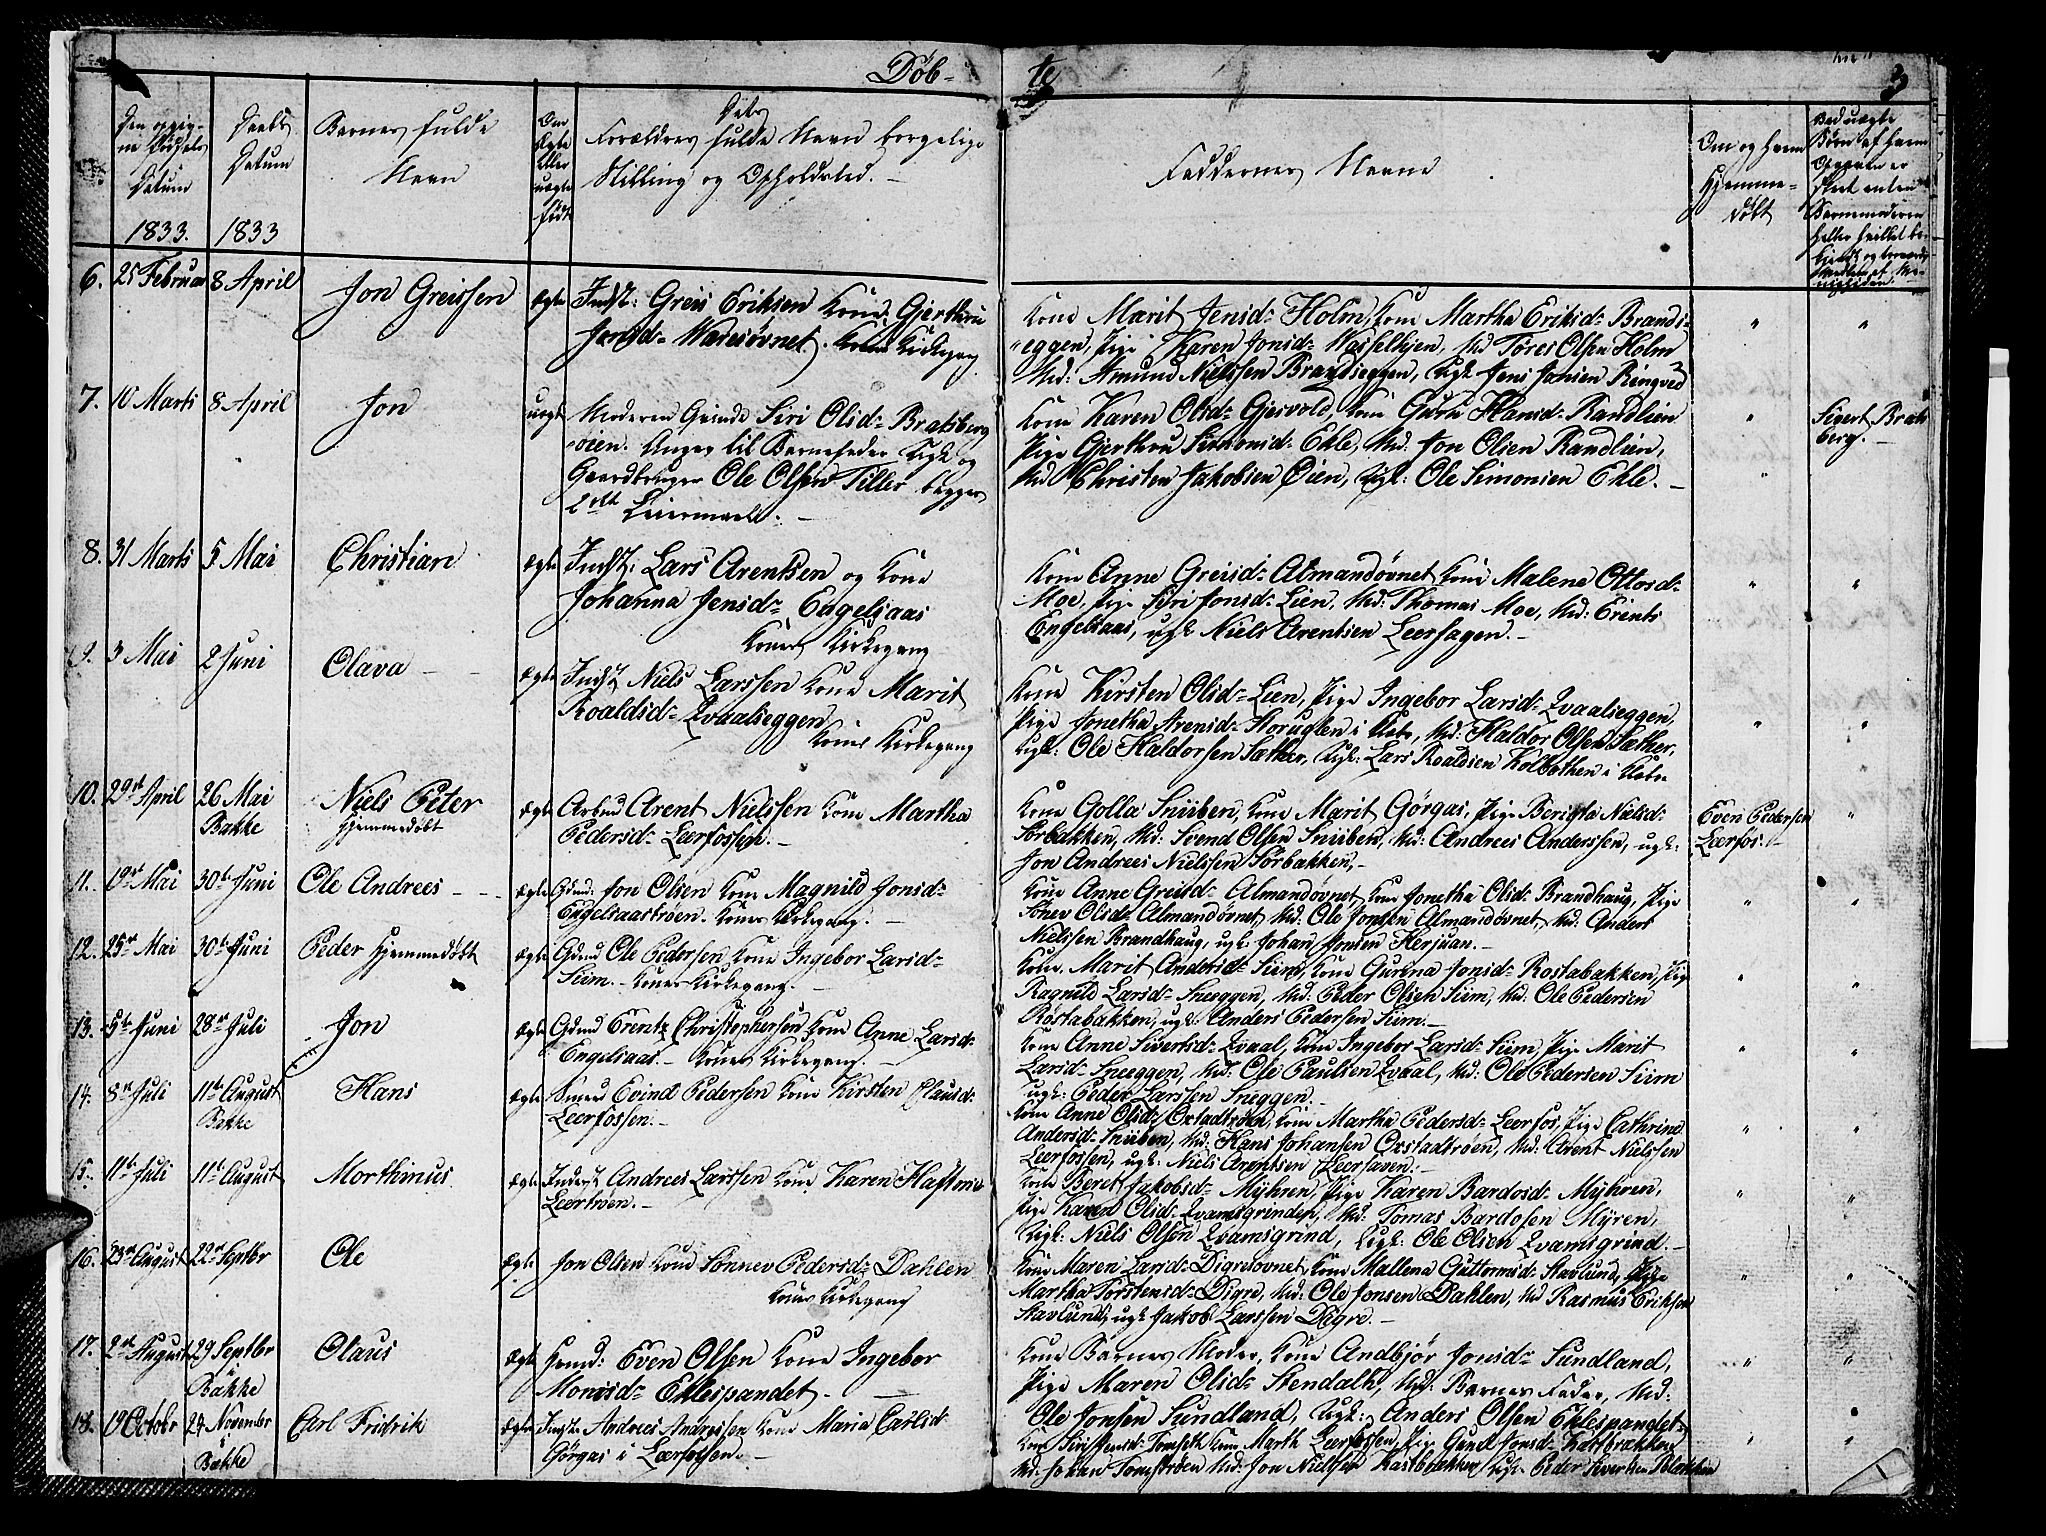 Døb-
te
3
Daabs
Datum
Datum
1833. 1833
Barnes fulde
Navn
Forældres fulde Navn borgelige
Stilling og Opholdsted.
Faddernes Navne
Om og hvem
Hjemme-
døbt
6. 25 Februar 8 April Jon Greissen ægte Indst: Greis Eriksen Kone Gjerthru
Jonsd: Waresøvnet. Kones Kirkegang
Kone Marit Jensd: Holm, Kone Martha Eriksd: Brands-
eggen, Pige Karen Jonsd: Hasselhjen, Md Tøres Olsen Holm
Md: Amund Nielssen Brandseggen, Ugk Jens Jonsen Ringved
7. 10 Marts 8 April Jon uægte Moderen Qvinde Siri Olsd: Bratsberg
øien. Angav til Barnefader Ugk og
Gaardbruger Ole Olsen Tiller begges
2det Leiermaal.
Kone Karen Olsd: Gjesvold, Kone Guru Hansd: Randlien
Pige Gjerthru Simonsd: Ekle, Md: Jon Olsen Randlien,
Md Christen Jakobsen Øien, Ugk: Ole Simonsen Ekle.
Sigert Brats
berg.
8. 31 Marts 5 Mai Christian ægte Indst: Lars Arentsen og Kone
Johanna Jensd: Engelsaas
Kones Kirkegang
Kone Anne Greisd: Almandøvnet Kone Malene Ottosd:
Moe, Pige Siri Jonsd: Lien, Md: Thomas Moe, Md: Erents
Engelsaas, ugk Niels Arentsen Leersagen.
9. 3 Mai 2 Juni Olava ægte Indst Niels Larssen Kone Marit
Roaldsd: Qvaalseggen
Kones Kirkegang
Kone Kirsten Olsd: Lien, Pige Ingebor Larsd: Qvaalseggen,
Pige Jonetha Arensd: Storuglen i Klæbo, Md: Haldor Olsen Sæther,
Ugk: Ole Haldorsen Sæther, Ugk: Lars Roaldsen Kolbothen i Klæbo
10. 29de April 26 Mai Niels Peter ægte Arbmd Arent Nielssen Kone Martha
Bakke Hjemmedøbt Pedersd: Leerfossen.
Kone Golla Sniiben, Kone Marit Görgas, Pige Beritha Nielsd:
Sorbakken, Md: Svend Olsen Sniiben, Md: Andrees Anderssen, ugk:
Jon Andrees Nielssen Sørbakken,
Even Pedersen
Lærfos.
11. 19de Mai 30te Juni Ole Andrees ægte Gdmd: Jon Olsen Kone Magnild Jonsd:
Engelsaastrøen. Kones Kirkegang.
Kone Anne Greisd: Almandøvnet Kone Jonetha Olsd: Brandhaug, Pige
Sönev Olsd: Almandøvnet, Md: Ole Jonsen Almandøvnet, Md: Anders
Nielssen Brandhaug, ugk: Johan Jonsen Herjuan.
12. 25de Mai 30te Juni Peder Hjemmedøbt ægte Gdmd Ole Pedersen Kone Ingebor Larsd:
Siim. Kones Kirkegang.
Kone Marit Andersd: Siim, Kone Gurina Jonsd: Rostabakken, Pige
Ragnild Larsd: Sneeggen, Md: Peder Olsen Siim, Md: Ole Pedersen
Røstabakken, ugk: Anders Pedersen Siim.
13. 5te Juni 28de Juli Jon ægte Gdmd Erentz Christophersen Kone Anne Larsd:
Engelsaas. Kones Kirkegang.
Kone Anne Siversd: Qvaal, Kone Ingebor Larsd: Siim, Pige Marit
Larsd: Sneeggen, Md: Ole Paulsen Qvaal, Md: Ole Pedersen Siim
ugk: Peder Larssen Sneggen.
14. 8de Juli 11te August Hans ægte Evind Pedersen Kone Kirsten Clausd:
Bakke Leerfossen.
Kone Anne Olsd: Oxtadtrøen, Kone Martha Pedersd: Leerfos, Pige Cathrine
Andersd: Sniiben, Md: Hans Johansen Oxstadtrøen, Md: Arent Nielssen
Leerfossen, ugk: Niels Arentsen Leersaven.
15. 11te Juli 11te August Morthinus ægte Inderst Andrees Larssen Kone Karen
Leertrøen.
Kone Beret Jakobsd: Mÿhren, Pige Karen Bardosd: Mÿhren,
Pige Karen Olsd: Qvamsgrinden, Md: Tomas Bardosen Mÿren,
Ugk: Niels Olsen Qvamsgrind, Ugk: Ole Olsen Qvamsgrind.
16. 23de August 22de Septbr Ole ægte Jon Olsen Kone Sønnev Pedersd: Dahlen
Kones Kirkegang
Kone Maren Larsd: Digresovnet Kone Mallena Guttormsd: Stavlund, Pige
Martha Torstensd: Digre, Md: Ole Jonsen Dahlen, Md Rasmus Eriksen
Stavlund, ugk Jakob Larssen Digre.
17. 2de August 29 Septbr Olaus ægte Even Olsen Kone Ingebor
i Bakke Monsd: Eklespandet.
Kone Barnes Moder, Kone Andbjør Jonsd: Sundland,
Pige Maren Olsd: Stendahl, Md: Barnes Fader, Md:
Ole Jonsen Sundland, Ugk: Anders Olsen Eklespandet
18. 19 Octobr 24 November Carl Fridrik ægte Indst Andrees Andreassen Kone Maria Carlsd:
i Bakke Görgas i Lærfossen.
Kone Siri Jensd: Tomseth Kone Marth Leerfossen, Pige Gunil Jonsd: Hastbrakken
Md: Johan Tomstrøen Md: Jon Nielssen Hastbrakken Ugk: Peder